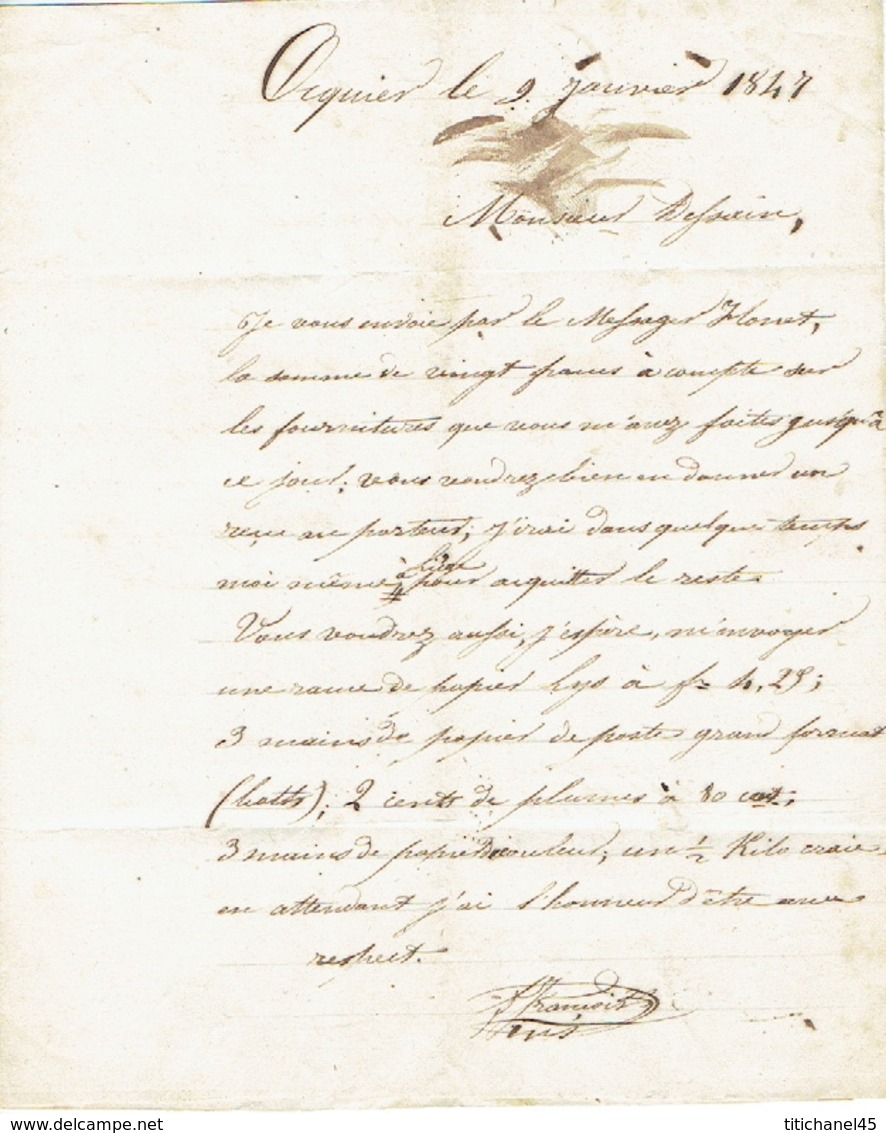 Ocquier le 9 Janvier 1847
Monsieur Dessain,
Je vous envoie par le Messager Flonet,
la somme de vingt francs à compte sur
les fournitures que vous m'avez faites jusqu'à
ce jour; vous voudrez bien en donner un
reçu au porteur; j'irai dans quelque temps
moi même à Liège pour acquitter le reste.
Vous voudrez aussi, j'espère, m'envoyer
une rame de papier lys à fr 4,25;
3 mains de papier de poste grand format
2 cents de plumes à 80 cts;
3 mains de papier de couleur; un ½ Kilo craie.
en attendant j'ai l'honneur d'être avec
respect.
François
titichanel45